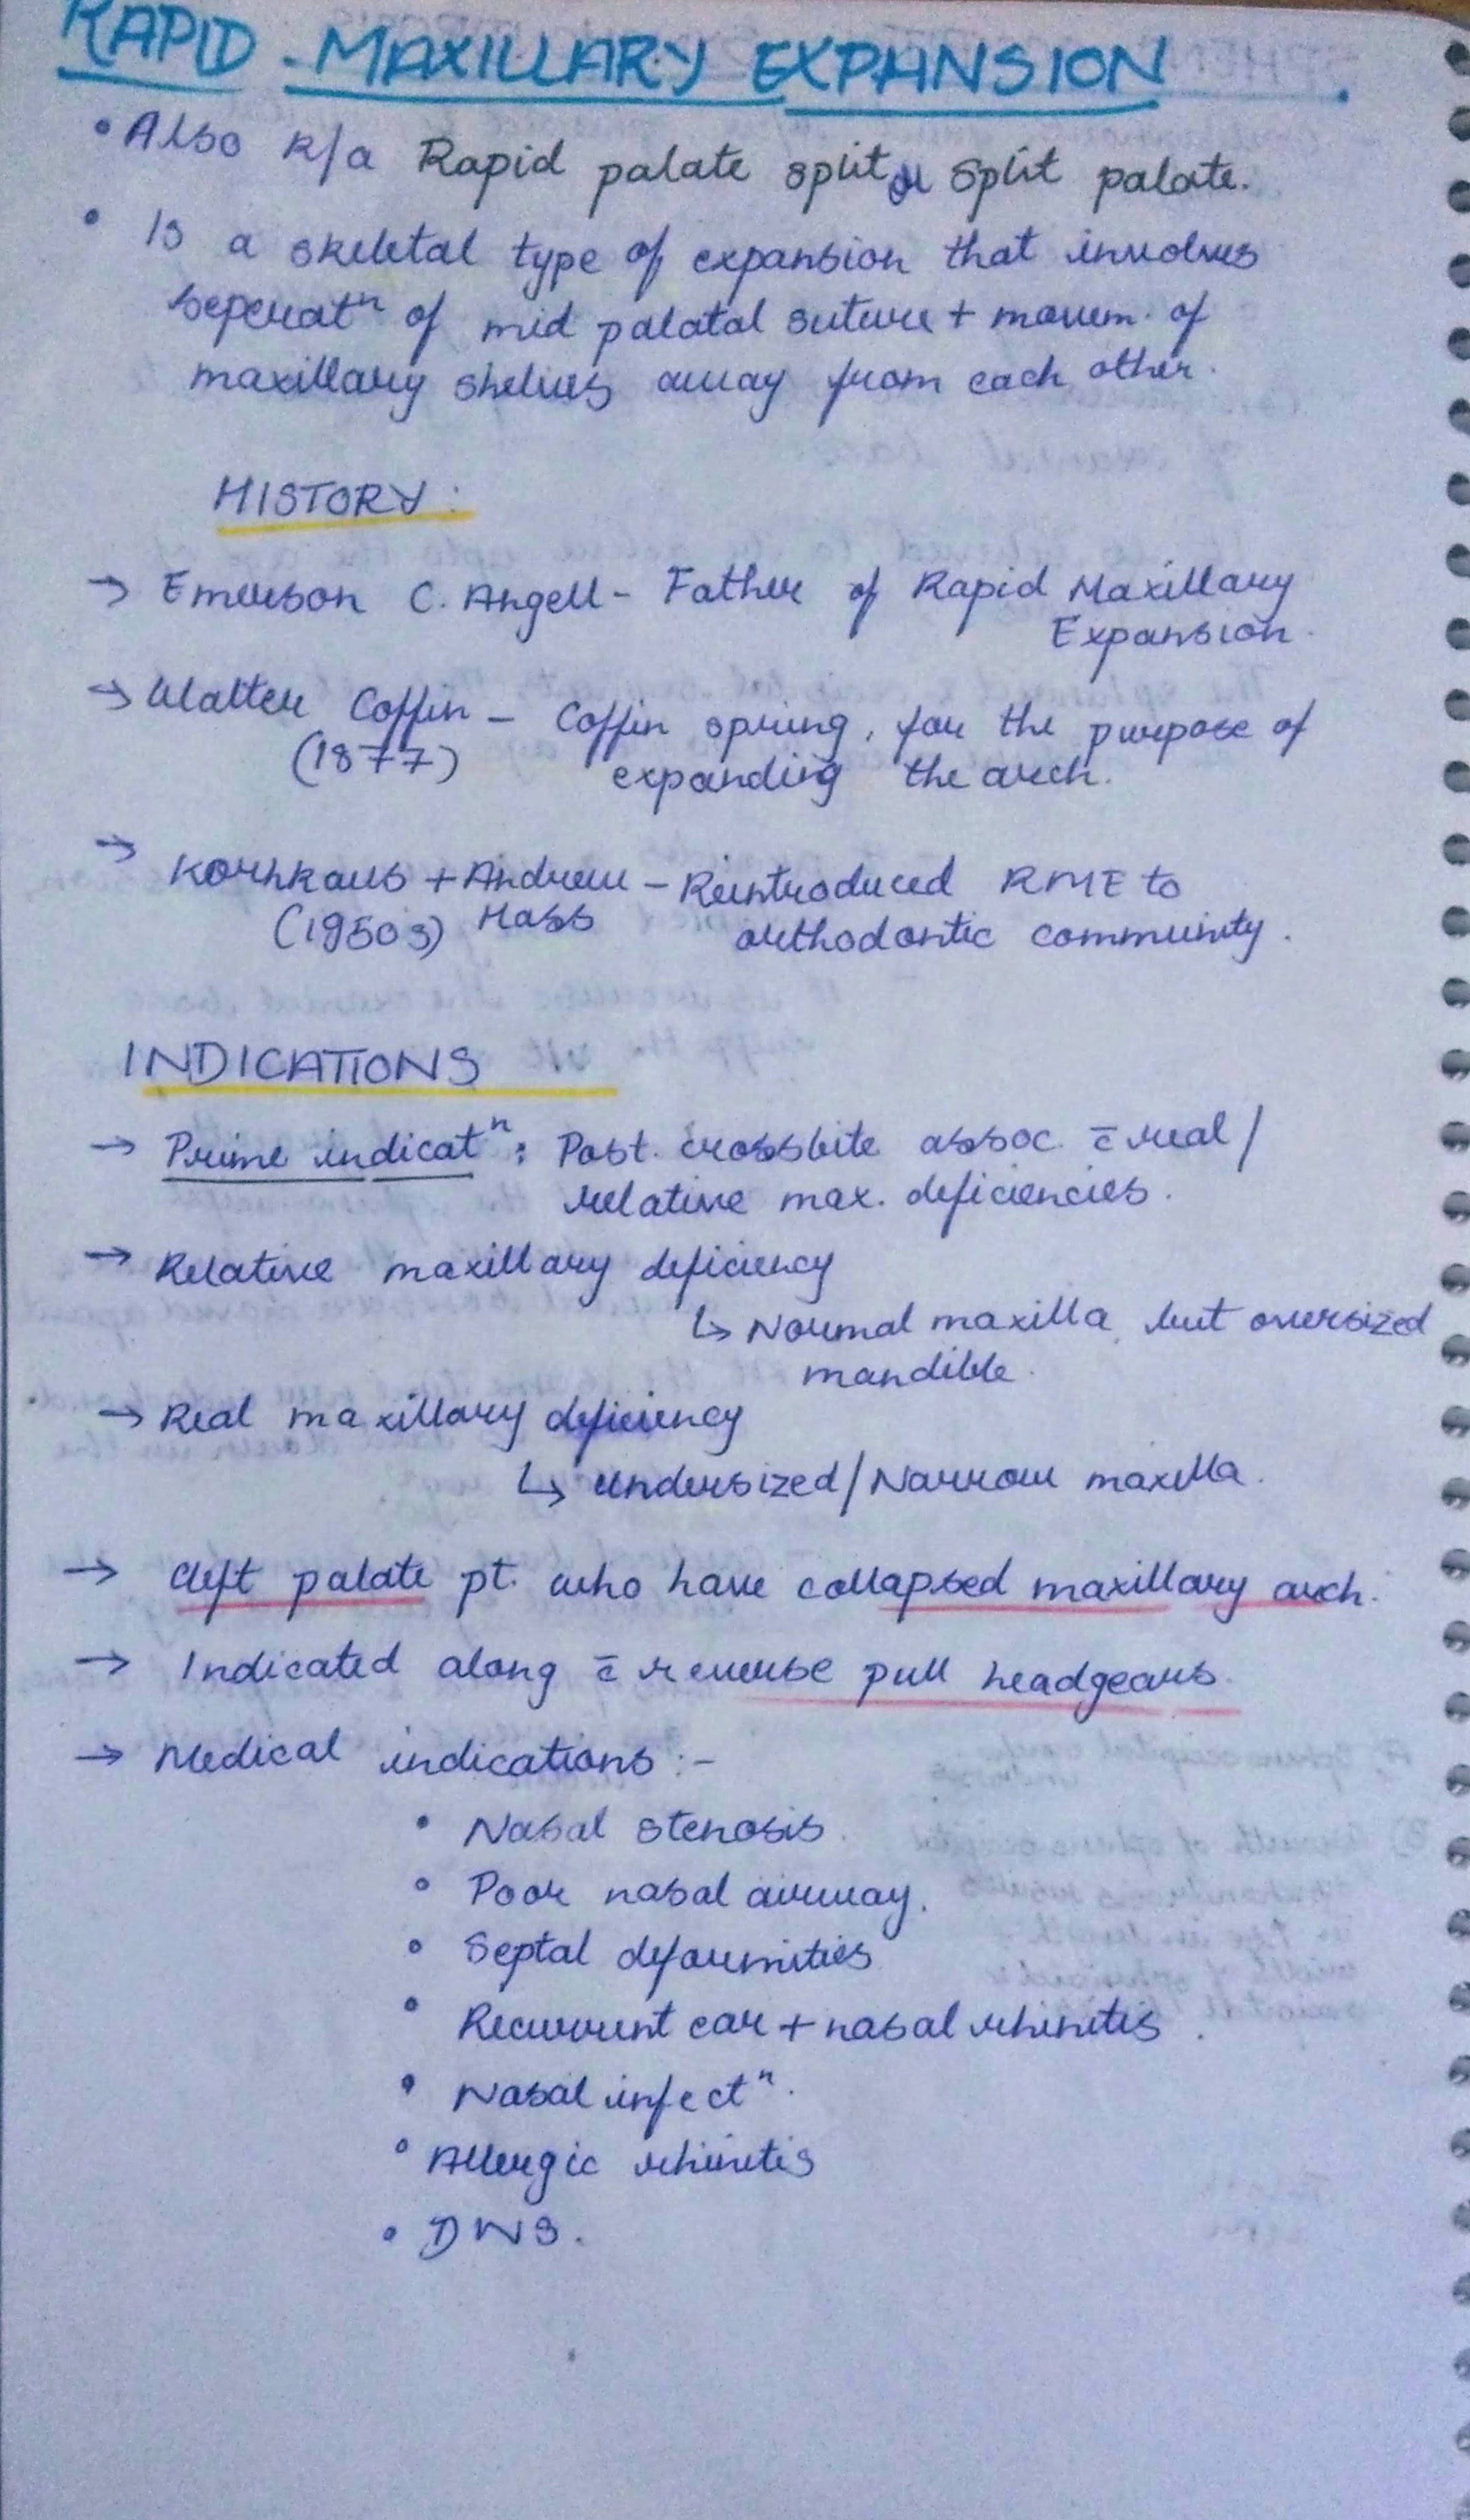 RAPID - MAXILLARY EXPANSION.
• Also k/a Rapid palate split or Split palate.
• Is a skeletal type of expansion that involves
seperatⁿ of mid palatal suture + movem. of
maxillary shelves away from each other.
HISTORY:
→ Emerson C. Angell - Father of Rapid Maxillary
Expansion.
→ Walter Coffin - Coffin spring, for the purpose of
(1877) expanding the arch.
→ Korhkaus + Andrew - Reintroduced RME to
(1950s) Hass orthodontic community.
INDICATIONS
→ Prime indicatⁿ: Post. crossbite assoc. c̄ real/
relative max. deficiencies.
→ Relative maxillary deficiency
↳ Normal maxilla but oversized
mandible.
→ Real maxillary deficiency
↳ undersized/Narrow maxilla.
→ cleft palate pt. who have collapsed maxillary arch.
→ Indicated along c̄ reverse pull headgears.
→ Medical indications:-
• Nasal stenosis.
• Poor nasal airway.
• Septal deformities
• Recurrent ear + nasal rhinitis.
• Nasal infectⁿ.
• Allergic rhinitis
• DNS.